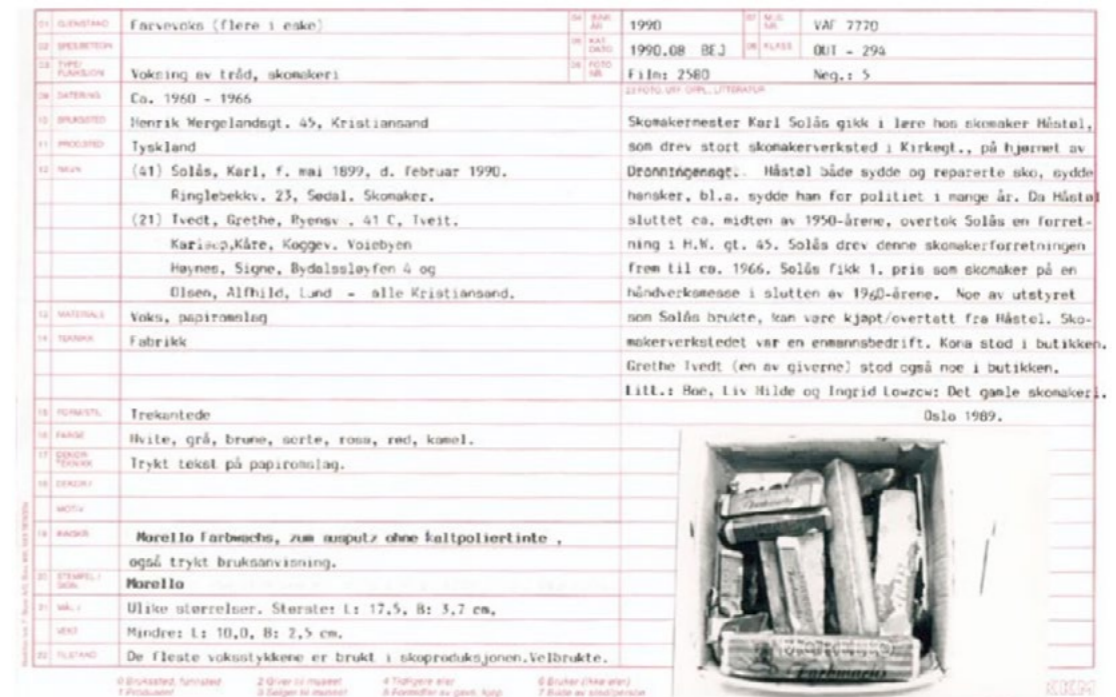 01 GJENSTAND Farvevoks (flere i eske)
04 INNK. ÅR 1990
07 MUS. NR. VAF 7770
02 SPES.BETEGN.
05 KAT. DATO 1990.08 BEJ
08 KLASS. OUT - 294
03 TYPE/FUNKSJON Voksing av tråd, skomakeri
06 FOTO NR. Film: 2580 Neg.: 5
09 DATERING Ca. 1960 - 1966
10 BRUKSSTED Henrik Wergelandsgt. 45, Kristiansand
11 PROD.STED Tyskland
12 NAVN (41) Solås, Karl, f. mai 1899, d. februar 1990.
Ringlebekkv. 23, Sødal. Skomaker.
(21) Tvedt, Grethe, Ryensv. 41 C, Tveit.
Kåre, Koggev. Voiebyen
Høynes, Signe, Bydalssløyfen 4 og
Olsen, Alfhild, Lund - alle Kristiansand.
13 MATERIALE Voks, papiromslag
14 TEKNIKK Fabrikk
15 FORM/STIL Trekantede
16 FARGE Hvite, grå, brune, sorte, rosa, rød, kamel.
17 DEKOR TEKNIKK Trykt tekst på papiromslag.
18 DEKOR/
MOTIV
19 Morello Farbwachs, zum ausputz ohne kaltpoliertinte ,
også trykt bruksanvisning.
20 STEMPEL/SIGN. Morello
21 MÅL/ Ulike størrelser. Største: L: 17,5, B: 3,7 cm,
VEKT Mindre: L: 10,0, B: 2,5 cm.
22 TILSTAND De fleste voksstykkene er brukt i skoproduksjonen.Velbrukte.
23 FOTO, UTF. OPPL., LITTERATUR
Skomakermester Karl Solås gikk i lære hos skomaker Håstøl,
som drev stort skomakerverksted i Kirkegt., på hjørnet av
Dronningensgt. Håstøl både sydde og reparerte sko, sydde
hansker, bl.a. sydde han for politiet i mange år. Da Håstøl
sluttet ca. midten av 1950-årene, overtok Solås en forret-
ning i H.W. gt. 45. Solås drev denne skomakerforretningen
frem til ca. 1966. Solås fikk 1. pris som skomaker på en
håndverksmesse i slutten av 1960-årene. Noe av utstyret
som Solås brukte, kan være kjøpt/overtatt fra Håstøl. Sko-
makerverkstedet var en enmannsbedrift. Kona stod i butikken.
Grethe Tvedt (en av giverne) stod også noe i butikken.
Litt.: Boe, Liv Hilde og Ingrid Lowzow: Det gamle skomakeri.
Oslo 1989.
MORELLO
Farbwachs
0 Brukssted, funnsted 2 Giver til museet 4 Tidligere eier 6 Bruker (ikke eier)
1 Produsent 3 Selger til museet 5 Formidler av gave, kjøp 7 Bilde av sted/person
KKM